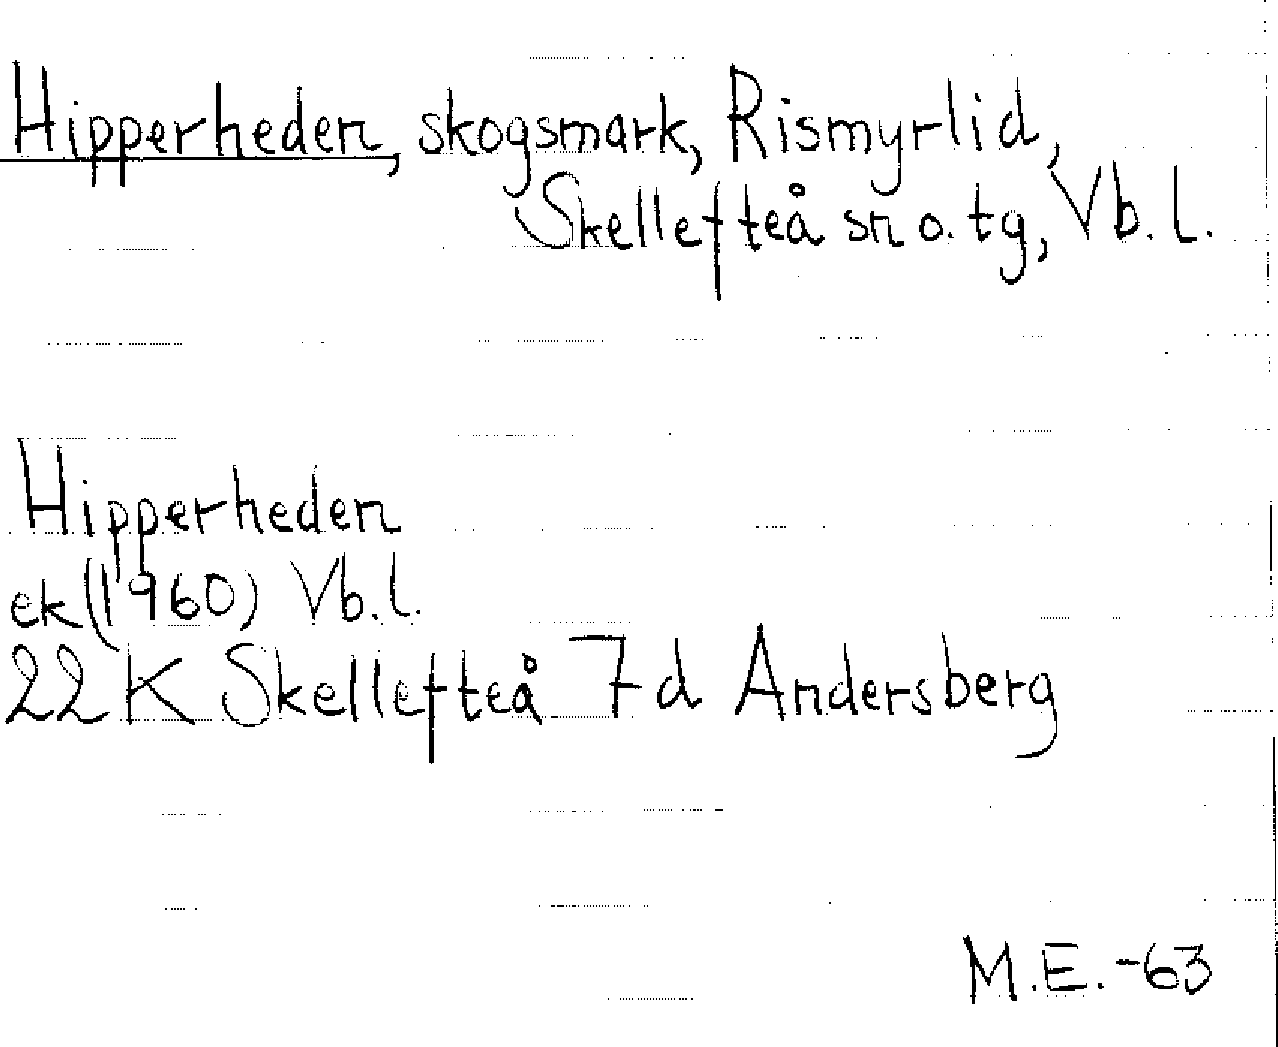 Hipperheden, skogsmark, Rismyrlid,
Skellefteå sn o. tg, Vb. l.
Hipperheden
ek (1960) Vb. l.
22 K Skellefteå 7d Andersberg
M.E. -63